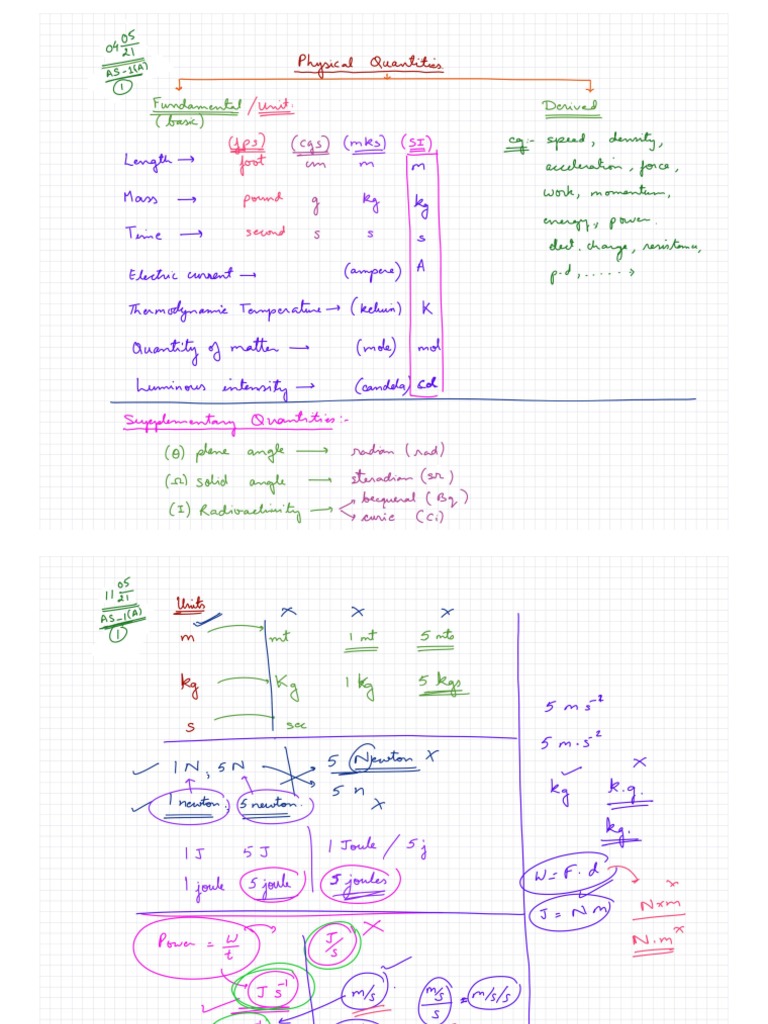 04 05/21
AS-1(A)
1
Physical Quantities
Fundamental / Unit:
(basic)
Derived
(fps) (cgs) (mks) (SI)
Length → foot cm m m
Mass → pound g kg kg
Time → second s s s
Electric current → (ampere) A
Thermodynamic Temperature → (kelvin) K
Quantity of matter → (mole) mol
Luminous intensity → (candela) cd
eg:- speed, density,
acceleration, force,
work, momentum,
energy, power.
elect. charge, resistance,
p.d, ......→
Supplementary Quantities:-
(θ) plane angle → radian (rad)
(Ω) solid angle → steradian (sr)
(I) Radioactivity → becqueral (Bq)
curie (Ci)
11 05/21
AS-1(A)
1
Units
✓ × × ×
m → mt 1 mt 5 mts
kg → Kg 1 Kg 5 kgs
s → sec
✓ 1N, 5N 5 Newton ×
5 n
×
✓ 1 newton, 5 newton.
1J 5J 1 Joule / 5j
1 joule 5 joule 5 joules
5 m s⁻²
5 m·s⁻²
✓ ×
kg k.g.
kg.
W = F.d
J = N m
×
N×m
N.m ×
Power = W/t
J/s ×
✓ J s⁻¹
m/s ✓
m/s/s = m/s/s